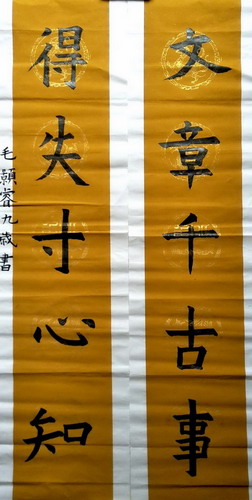 文章千古事
得失寸心知
毛顗睿九歲書